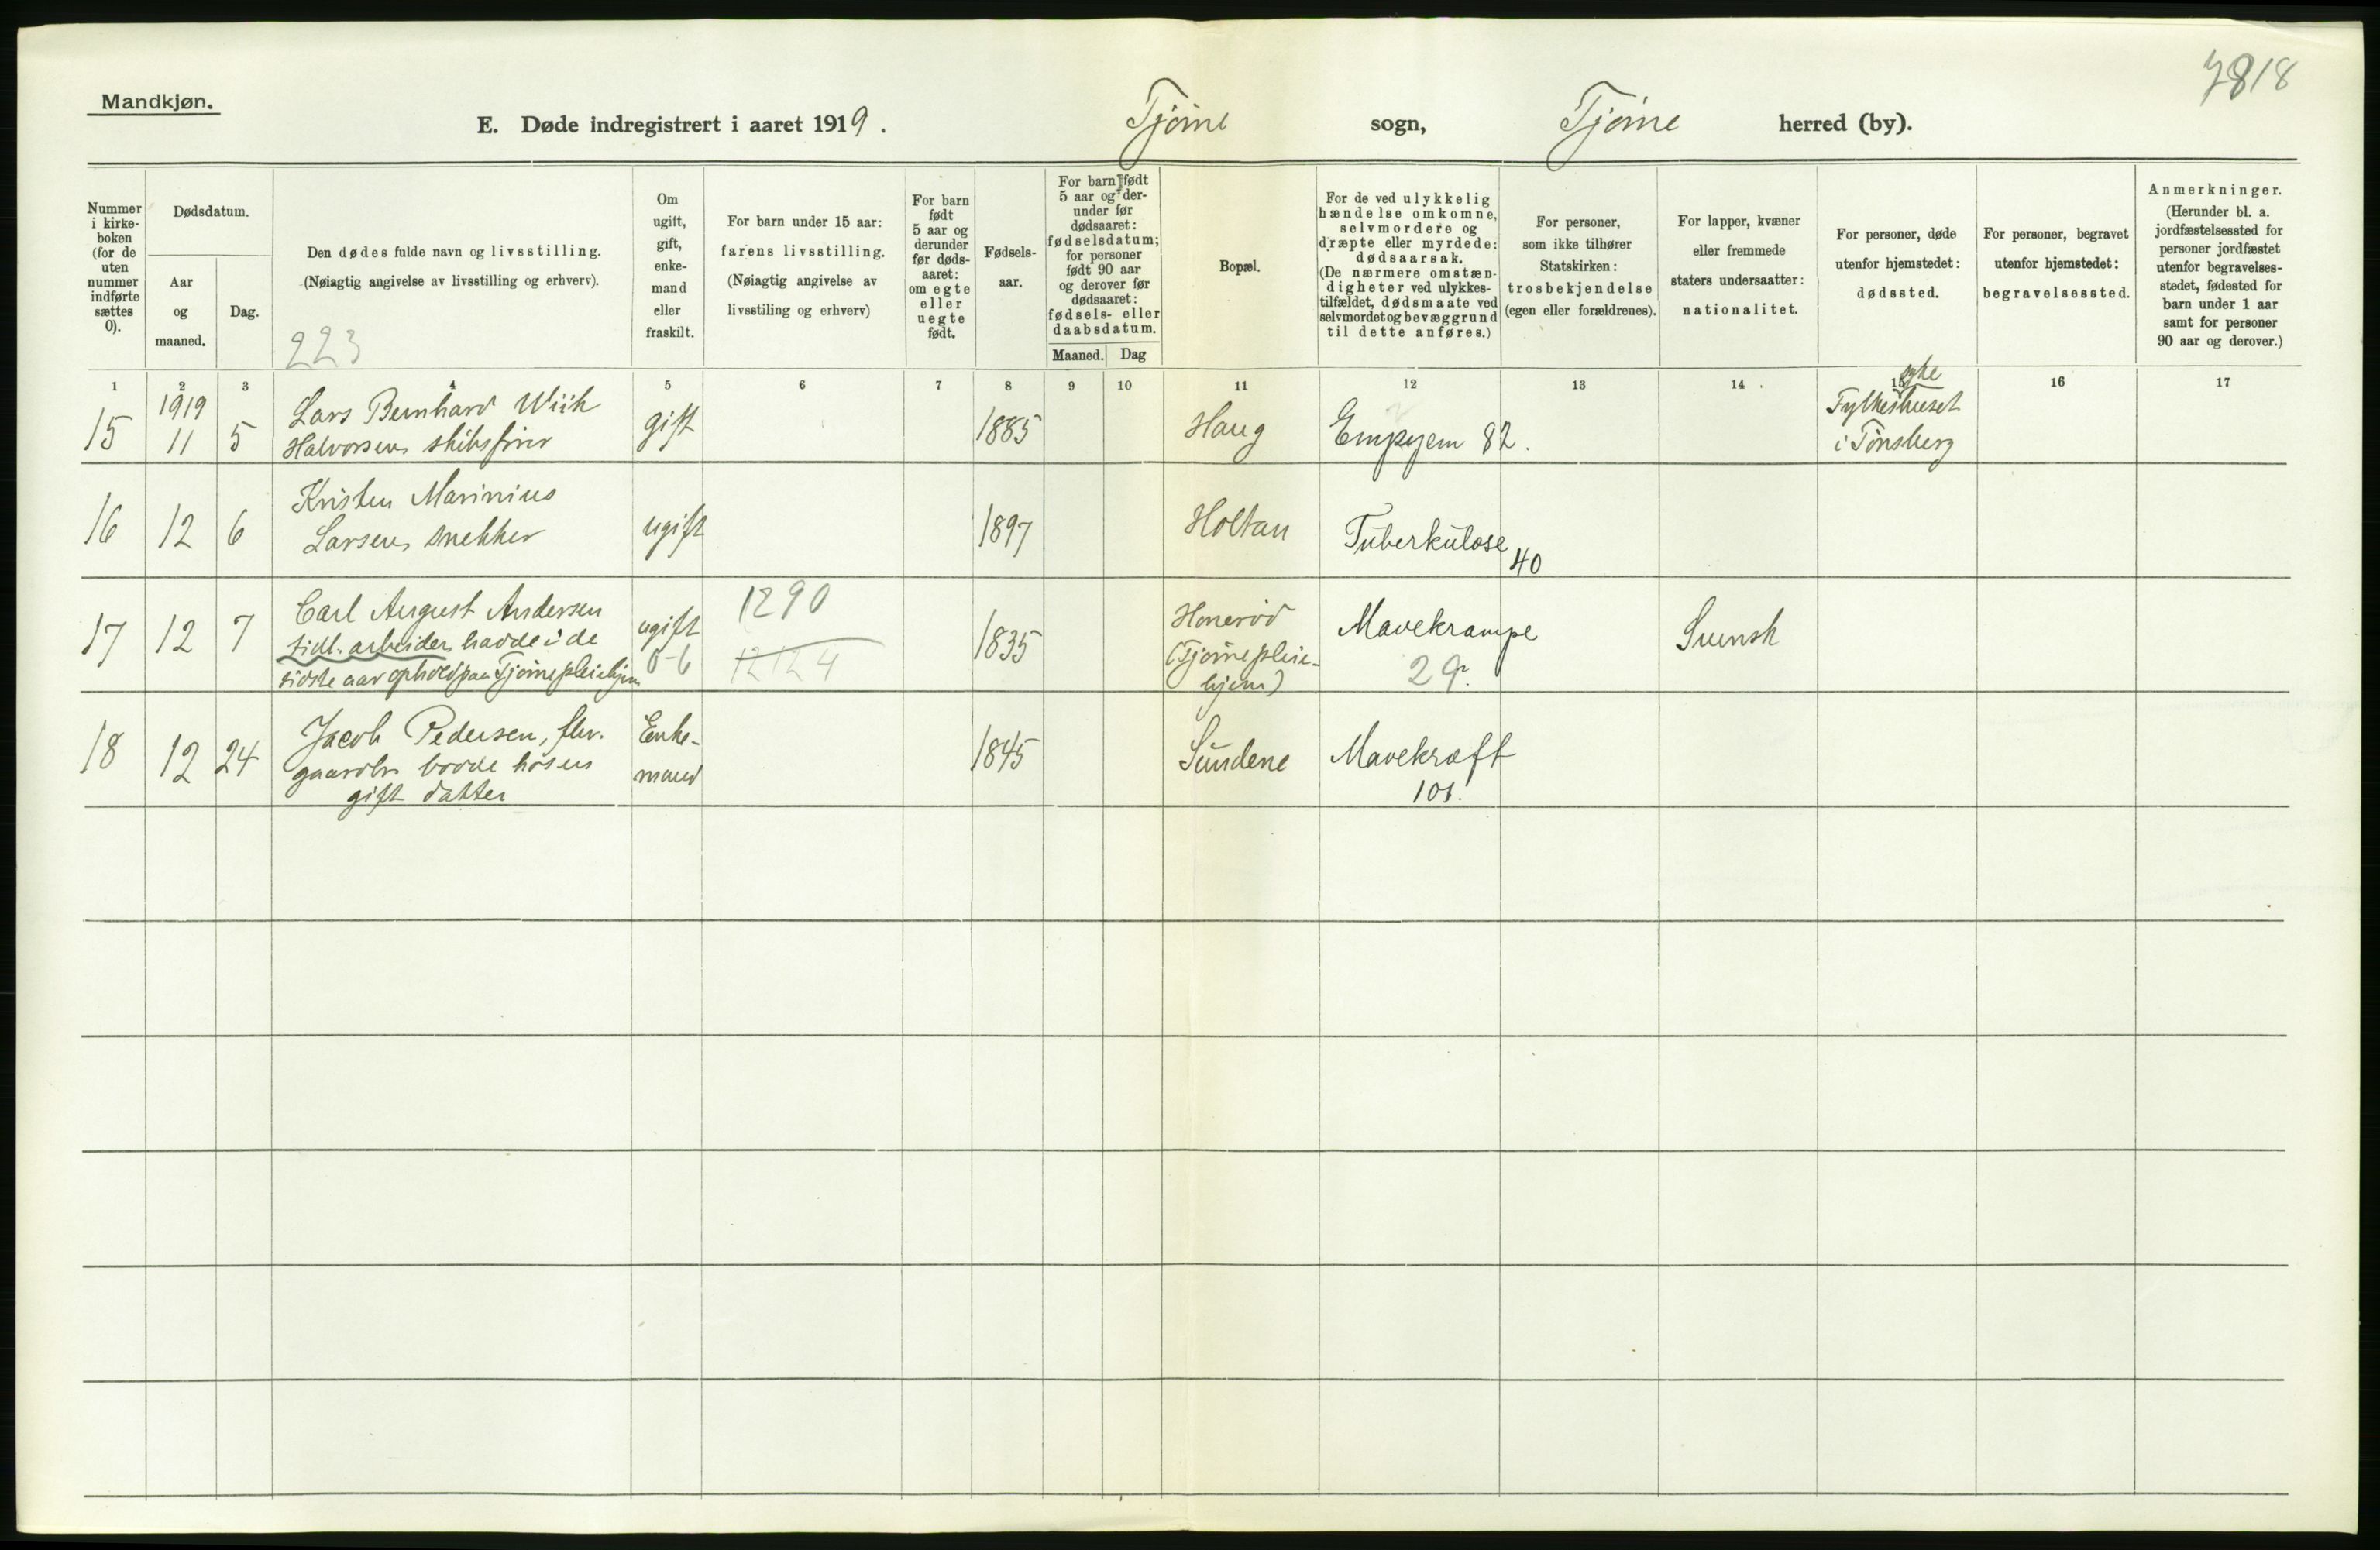 7818
Mandkjøn.
E. Døde indregistrert i aaret 1919. Tjöme sogn, Tjöme herred (by).
Nummer
i kirke-
boken
(for de
uten
nummer
indførte
sættes
0).
Dødsdatum.
Aar
og
maaned.
Dag.
Den dødes fulde navn og livsstilling.
(Nøiagtig angivelse av livsstilling og erhverv).
223
Om
ugift,
gift,
enke-
mand
eller
fraskilt.
For barn under 15 aar:
farens livsstilling.
(Nøiagtig angivelse av
livsstiling og erhverv)
For barn
født
5 aar og
derunder
før døds-
aaret:
om egte
eller
uegte
født.
Fødsels-
aar.
For barn født
5 aar og der-
under før
dødsaaret:
fødselsdatum;
for personer
født 90 aar
og derover før
dødsaaret:
fødsels- eller
daabsdatum.
Maaned. Dag
Bopæl.
For de ved ulykkelig
hændelse omkomne,
selvmordere og
dræpte eller myrdede:
dødsaarsak.
(De nærmere omstæn-
digheter ved ulykkes-
tilfældet, dødsmaate ved
selvmordet og bevæggrund
til dette anføres.)
For personer,
som ikke tilhører
Statskirken:
trosbekjendelse
(egen eller forældrenes).
For lapper, kvæner
eller fremmede
staters undersaatter:
nationalitet.
For personer, døde
utenfor hjemstedet:
dødssted.
For personer, begravet
utenfor hjemstedet:
begravelsessted.
Anmerkninger.
(Herunder bl. a.
jordfæstelsessted for
personer jordfæstet
utenfor begravelses-
stedet, fødested for
barn under 1 aar
samt for personer
90 aar og derover.)
1 2 3 4 5 6 7 8 9 10 11 12 13 14 15 16 17
1919
15 11 5 Lars Bernhard Wiik
Halvorsen skibsförer
gift 1885 Haug Empyem 82.
syke
Fylkeshuset
i Tönsberg
16 12 6 Kristen Marinius
Larsen, snekker
ugift 1897 Holtan Tuberkulose
40
17 12 7 Carl August Andersen
tidl. arbeider, hadde i de
sidste aar ophold paa Tjöme pleiehjem
ugift
0-6
1290
12124
1835
Honeröd
(Tjöme pleie-
hjem)
Mavekrampe
29.
Svensk
18 12 24 Jacob Pedersen, fhv.
gaardbr. bodde hos en
gift datter
Enke-
mand
1845 Sundene Mavekræft
101.